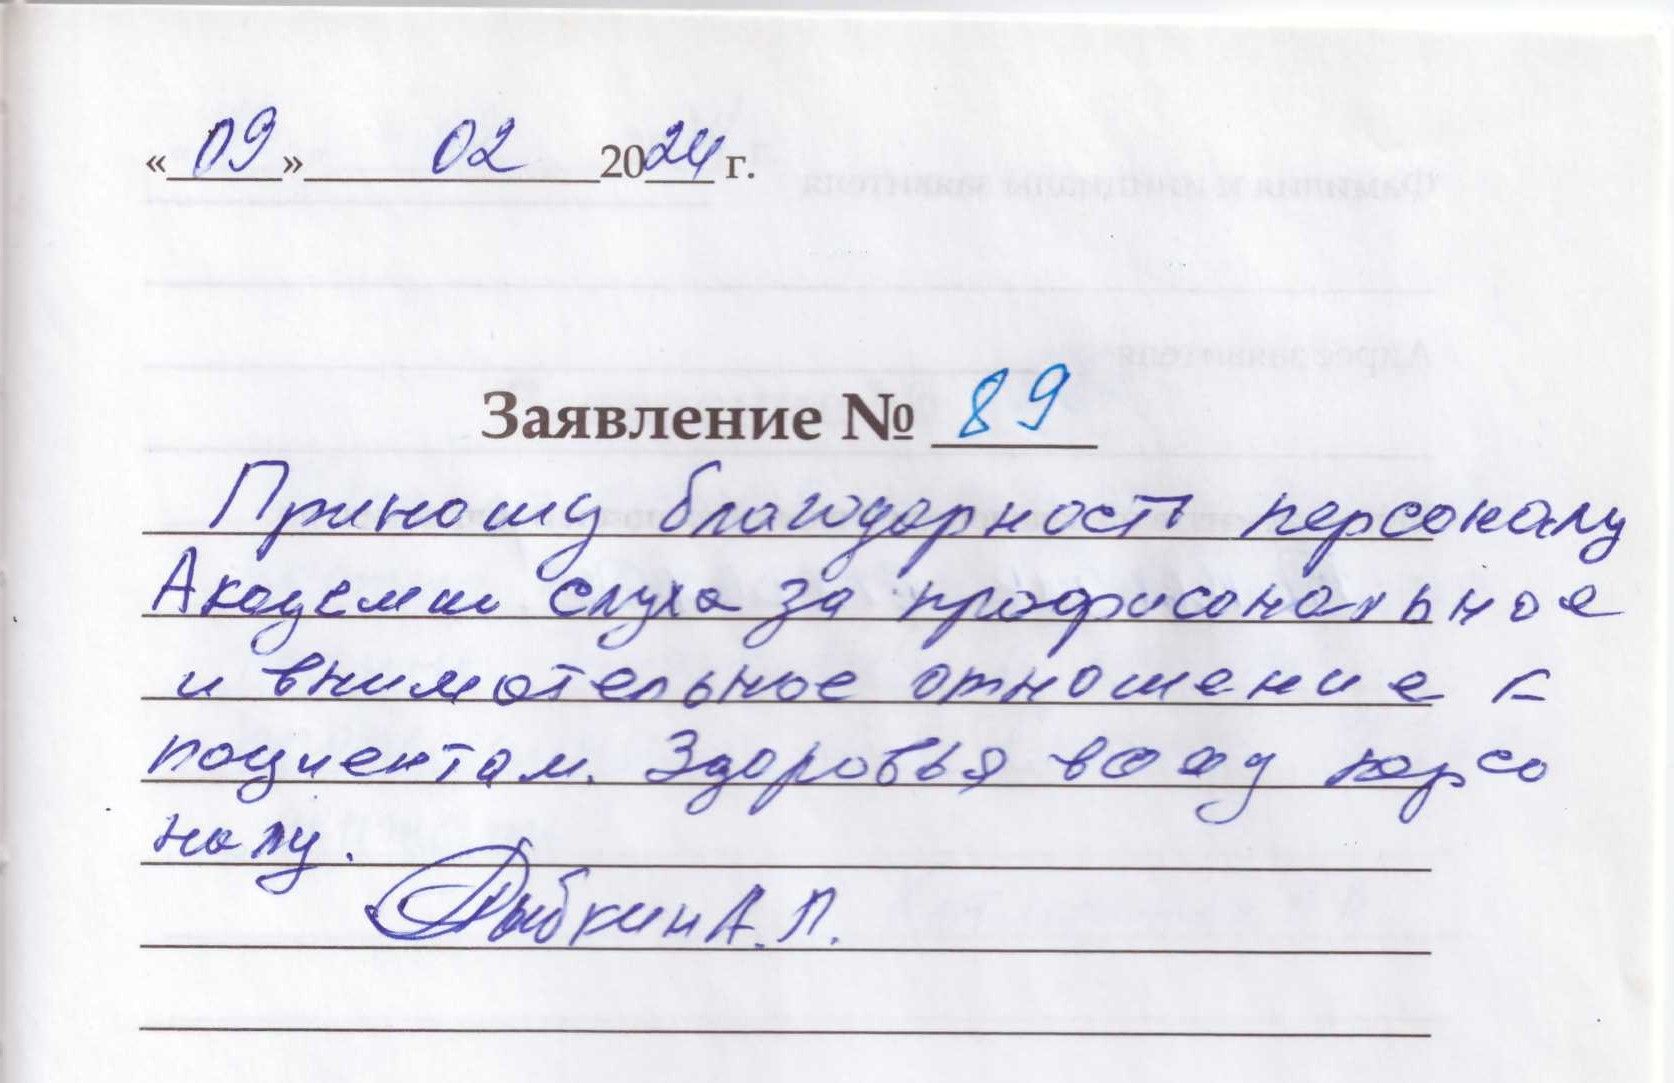 «09» 02 2024 г.
Заявление № 89
Приношу благодарность персоналу
Академии слуха за профисональное
и внимательное отношение к
пациентам. Здоровья персо
налу.
Рыбкин А.П.